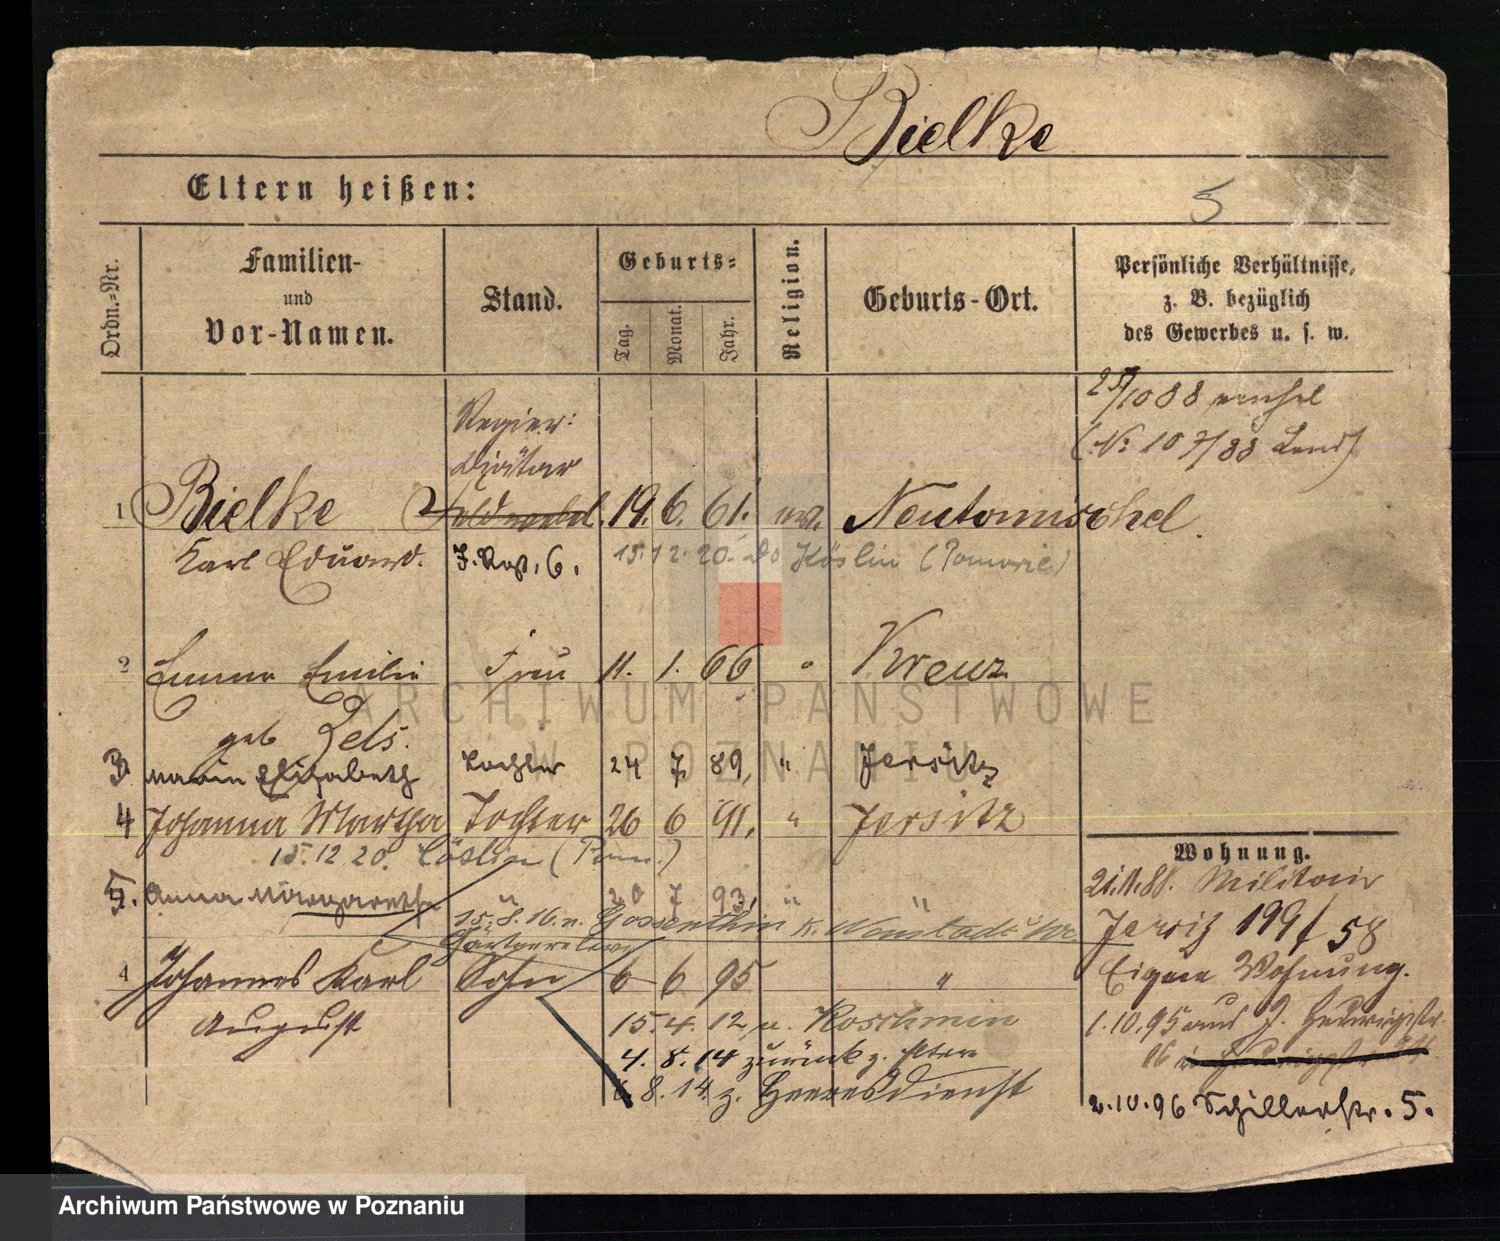 Bielke
Eltern heißen:
5
Ordn.-Nr.
Familien-
und
Vor-Namen.
Stand.
Geburts-
Tag.
Monat.
Jahr.
Religion.
Geburts-Ort.
Persönliche Verhältnisse,
z. B. bezüglich
des Gewerbes u. s. w.
25/10 88
(No 107/88 Land)
Regier:
Diätar
1 Bielke Feldwebel. 19. 6. 61. ev. Neutomischel.
Karl Eduard. 6. 15.12.20. Do Köslin (Pomorie)
2 Emma Emilie Frau 11. 1. 66 " Kreuz
geb Zels.
3 Maria Elisabeth Tochter 24 7 89, " Jersitz
4 Johanna Martha Tochter 26 6 91, " Jersitz
15.12 20. Cöslin (Pom.)
5. Anna Margarethe " 20 7 93, " "
15.8.16. n. Gossenthin K. Neustadt
4 Johannes Karl Sohn 6 6 95 "
August 15.4.12 n. Koschmin
4.8.14 zurück z. Eltern
6.8.14 z. Heeresdienst
Wohnung.
21.11.88. Militair
Jersitz 199/58
Eigene Wohnung.
1.10.95 aus J. Hedwigstr.
2.10.96 Schillerstr. 5.
ARCHIWUM PAŃSTWOWE
W POZNANIU
Archiwum Państwowe w Poznaniu